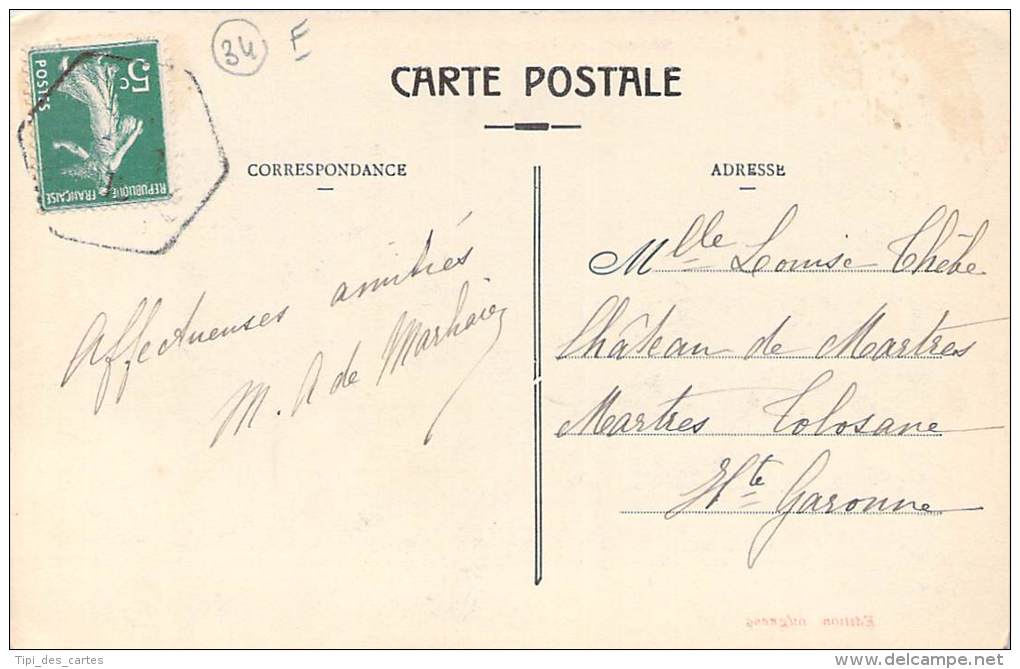 34 F
5c
POSTES
REPUBLIQUE FRANÇAISE
CARTE POSTALE
CORRESPONDANCE
Affectueuses amitiés
M. A de
ADRESSE
Mlle Louise Thèbe
Château de Martres
Martres Tolosane
Hte Garonne
Edition
Tipi_des_cartes
www.delcampe.net